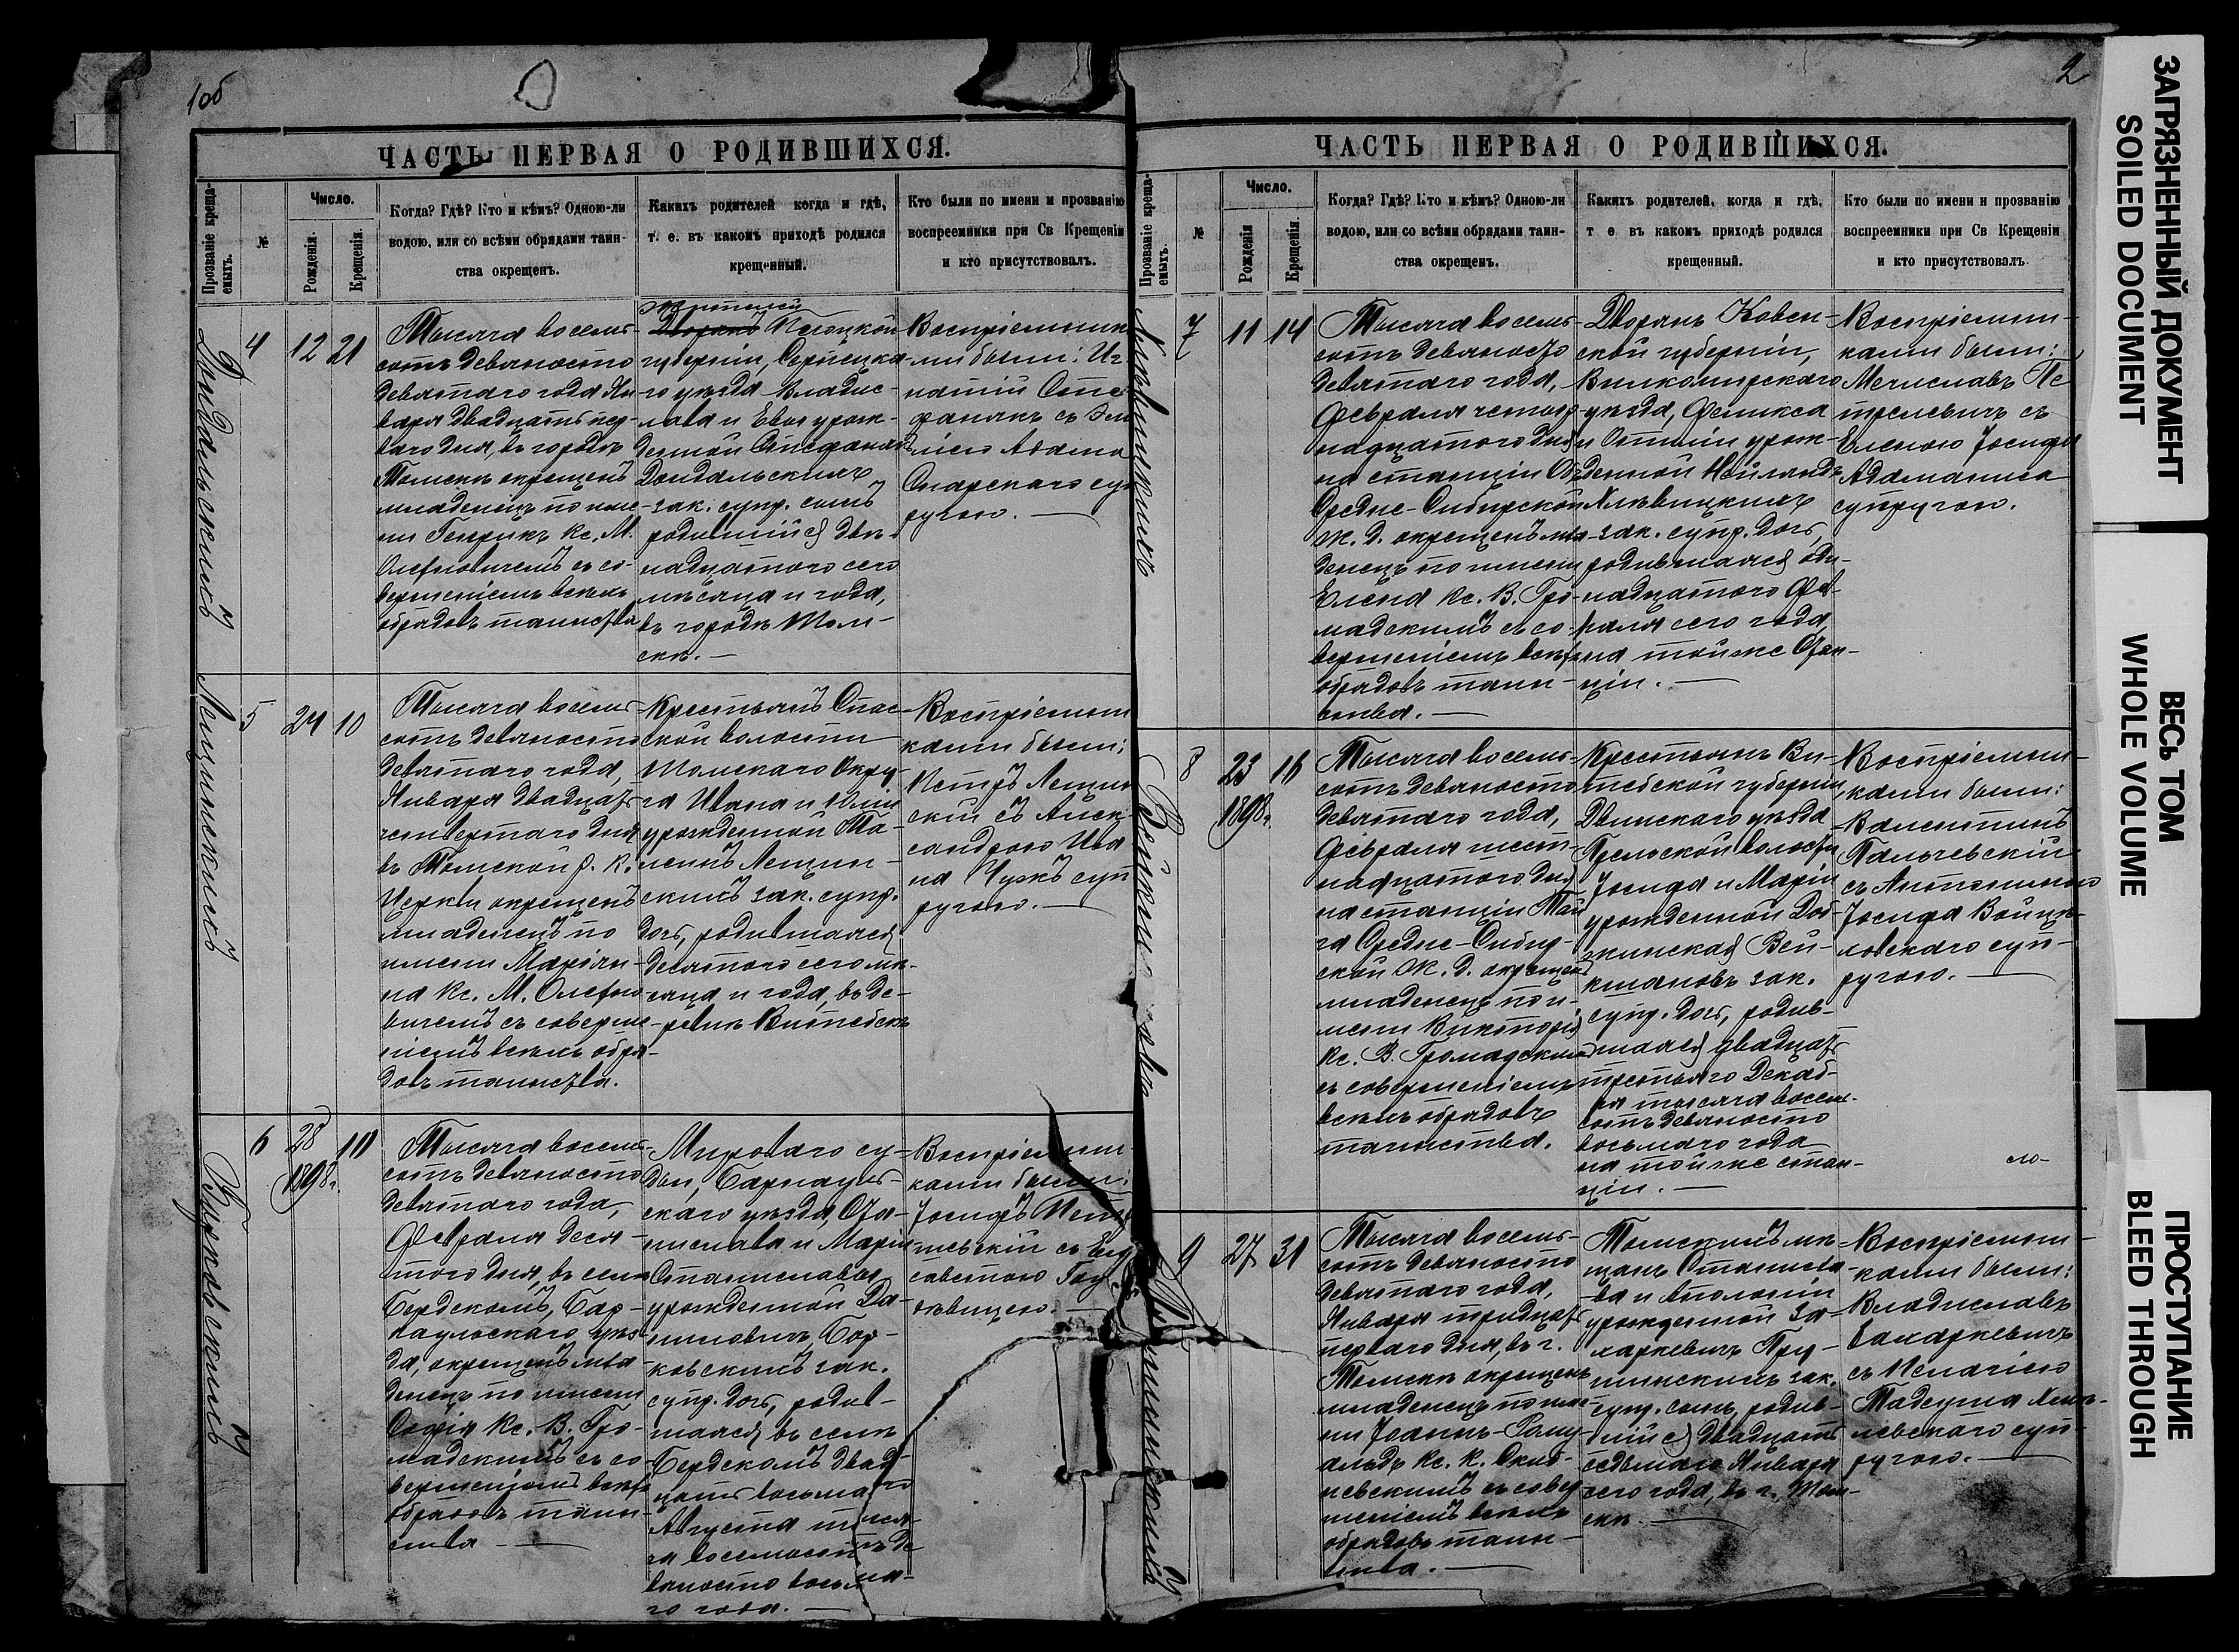 1об
ЧАСТЬ ПЕРВАЯ О РОДИВШИХСЯ.
Прозваніе креща-
емыхъ.
№
Число.
Рожденія.
Крещенія.
Когда? Гдѣ? Кто и кѣмъ? Одною-ли
водою, или со всѣми обрядами таин-
ства окрещенъ.
Какихъ родителей когда и гдѣ,
т. е. въ какомъ приходѣ родился
крещенный.
Кто были по имени и прозванію
воспреемники при Св Крещеніи
и кто присутствовалъ.
4
12
21
Тысяча восемь-
сотъ девяносто
девятаго года Ян-
варя двадцать пер-
ваго дня, въ городѣ
Томскѣ окрещенъ
младенецъ по име-
ни Генрикъ Кс. М.
съ со-
вершеніемъ всѣхъ
обрядовъ таинства
губерніи,
го уѣзда Владис-
лава и Евы урож-
денной
зак. супр. сынъ
родившійся двѣ-
надцатаго сего
мѣсяца и года,
въ городѣ Том-
скѣ. —
ми были: Иг-
натій Сте
фанякъ съ
Адама
ругою. —
Лещинскихъ
5
24
10
Тысяча восемь-
сотъ девяносто
девятаго года,
Января двадцать
четвертаго дня
въ Томской р. к.
Церкви окрещенъ
младенецъ по
имени Маріан-
на Кс. М.
съ соверше-
ніемъ всѣхъ обря-
довъ таинства.
Крестьянъ Спас-
ской волости
Томскаго Окру-
га Ивана и Юліи
урожденной
Лещин-
скихъ зак. супр.
дочь, родившаяся
девятаго сего мѣ-
сяца и года, въ де-
ревнѣ Витебскъ
Воспріемни
ками были:
Петръ Лещин
скій съ Алек-
сандрою Ива
на Чужъ суп
ругою. —
6
28
1898 г.
10
Тысяча восемь-
сотъ девяносто
девятаго года,
Февраля деся-
таго дня, въ селѣ
Бердскомъ, Бар-
наульскаго уѣз-
да, окрещенъ мла-
денецъ по имени
Софія Кс. В. Гро-
мадскимъ съ со-
вершеніемъ всѣхъ
обрядовъ таин-
ства —
Мироваго су-
дьи, Барнауль-
скаго уѣзда, Ста-
нислава и Маріи
Станиславы
урожденной Да-
ниловичъ, Бор-
ковскихъ зак.
супр. дочь, родив-
шаяся въ селѣ
Бердскомъ двад-
цать восьмаго
Августа тыся-
ча восемьсотъ де
вяносто восьма-
го года. —
ками были:
Іосифъ
съ Ели
саветою
2
ЧАСТЬ ПЕРВАЯ О РОДИВШИХСЯ.
Прозваніе креща-
емыхъ.
№
Число.
Рожденія
Крещенія.
Когда? Гдѣ? Кто и кѣмъ? Одною-ли
водою, или со всѣми обрядами таин-
ства окрещенъ.
Какихъ родителей, когда и гдѣ,
т е. въ какомъ приходѣ родился
крещенный.
Кто были по имени и прозванію
воспреемники при Св Крещеніи
и кто присутствовалъ.
7
11
14
Тысяча восемь-
сотъ девяносто
девятаго года,
Февраля четыр-
надцатаго дня
на станціи
Средне-Сибирской
Ж. Д. окрещенъ мла-
денецъ по имени
Елена Кс. В. Гро-
мадскимъ съ со-
вершеніемъ всѣхъ
обрядовъ таин-
ства. —
Дворянъ Ковен-
ской губерніи,
Вилкомирскаго
уѣзда, Феликса
и Отиліи урож-
денной
зак. супр. дочь,
родившаяся оди-
надцатаго Фев-
раля сего года,
на той же Стан-
ціи. —
Воспріемни-
ками были:
Мечиславъ Пе
тре­левичъ съ
Еленою Іосифа
Адаманиса
супругою.
8
23
1898 г.
16
Тысяча восемь-
сотъ девяносто
девятаго года,
Февраля шест-
надцатаго дня
на станціи Тай
га Средне-Сибир-
ской Ж. Д. окрещенъ
младенецъ по и-
мени Викторія
Кс. В. Громадскимъ
съ совершеніемъ
всѣхъ обрядовъ
таинства.
Крестьянъ Ви-
тебской губерніи,
Двинскаго уѣзда
волости
Іосифа и Маріи
урожденной
зак.
супр. дочь, родив-
шаяся двадцать
третьяго Декаб-
ря тысяча восемь-
сотъ девяносто
восьмаго года
на той же стан-
ціи. —
Воспріемни-
ками были:
Валентинъ
Пальчевскій
съ Антониною
Іосифа Войцѣ-
ловскаго суп-
ругою. —
9
27
31
Тысяча восемь-
сотъ девяносто
девятаго года,
Января тридцать
перваго дня, въ г.
Томскѣ окрещенъ
младенецъ по име-
ни Іоаннъ-Рому-
альдъ Кс. К.
съ совер
шеніемъ всѣхъ
обрядовъ таин-
ства. —
Томскихъ мѣ-
щанъ Станисла-
ва и Аполоніи
урожденной За-
харкевичъ Пру-
шинскихъ зак.
супр. сынъ, родив-
шійся двадцать
седьмаго Января
сего года, въ г. Том-
скѣ. —
Воспріемни-
ками были:
Владиславъ
Захаркевичъ
съ Пелагіею
Тадеуша
суп-
ругою. —
ЗАГРЯЗНЕННЫЙ ДОКУМЕНТ
SOILED DOCUMENT
ВЕСЬ ТОМ
WHOLE VOLUME
ПРОСТУПАНИЕ
BLEED THROUGH